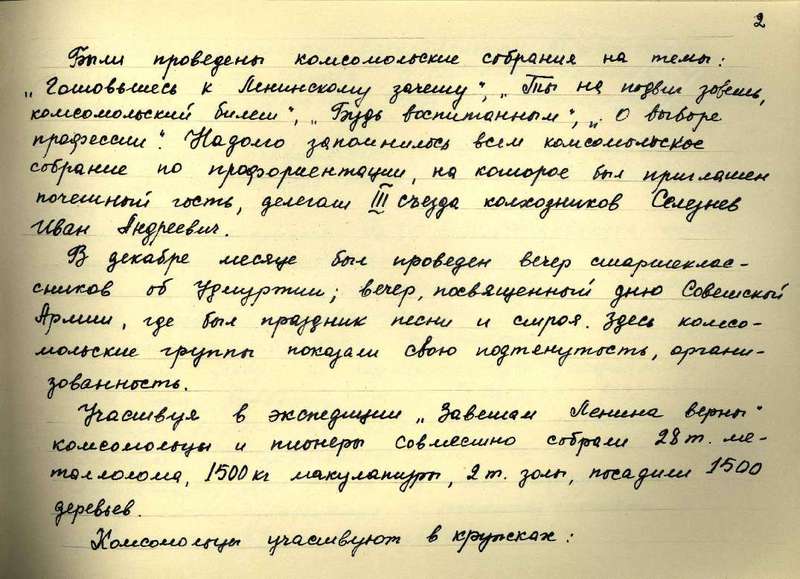 2
Были проведены комсомольские собрания на темы:
„Готовьтесь к Ленинскому зачету“, „Ты на подвиг зовешь,
комсомольский билет“, „Будь воспитанным“, „О выборе
профессии“. Надолго запомнилось всем комсомольское
собрание по профориентации, на которое был приглашен
почетный гость, делегат III съезда колхозников Селезнев
Иван Андреевич.
В декабре месяце был проведен вечер старшеклас-
сников об Удмуртии; вечер, посвященный дню Советской
Армии, где был праздник песни и строя. Здесь комсо-
мольские группы показали свою подтянутость, органи-
зованность.
Участвуя в экспедиции „Заветам Ленина верны“
комсомольцы и пионеры совместно собрали 28 т. ме-
таллолома, 1500 кг макулатуры, 2 т. золы, посадили 1500
деревьев.
Комсомольцы участвуют в кружках: